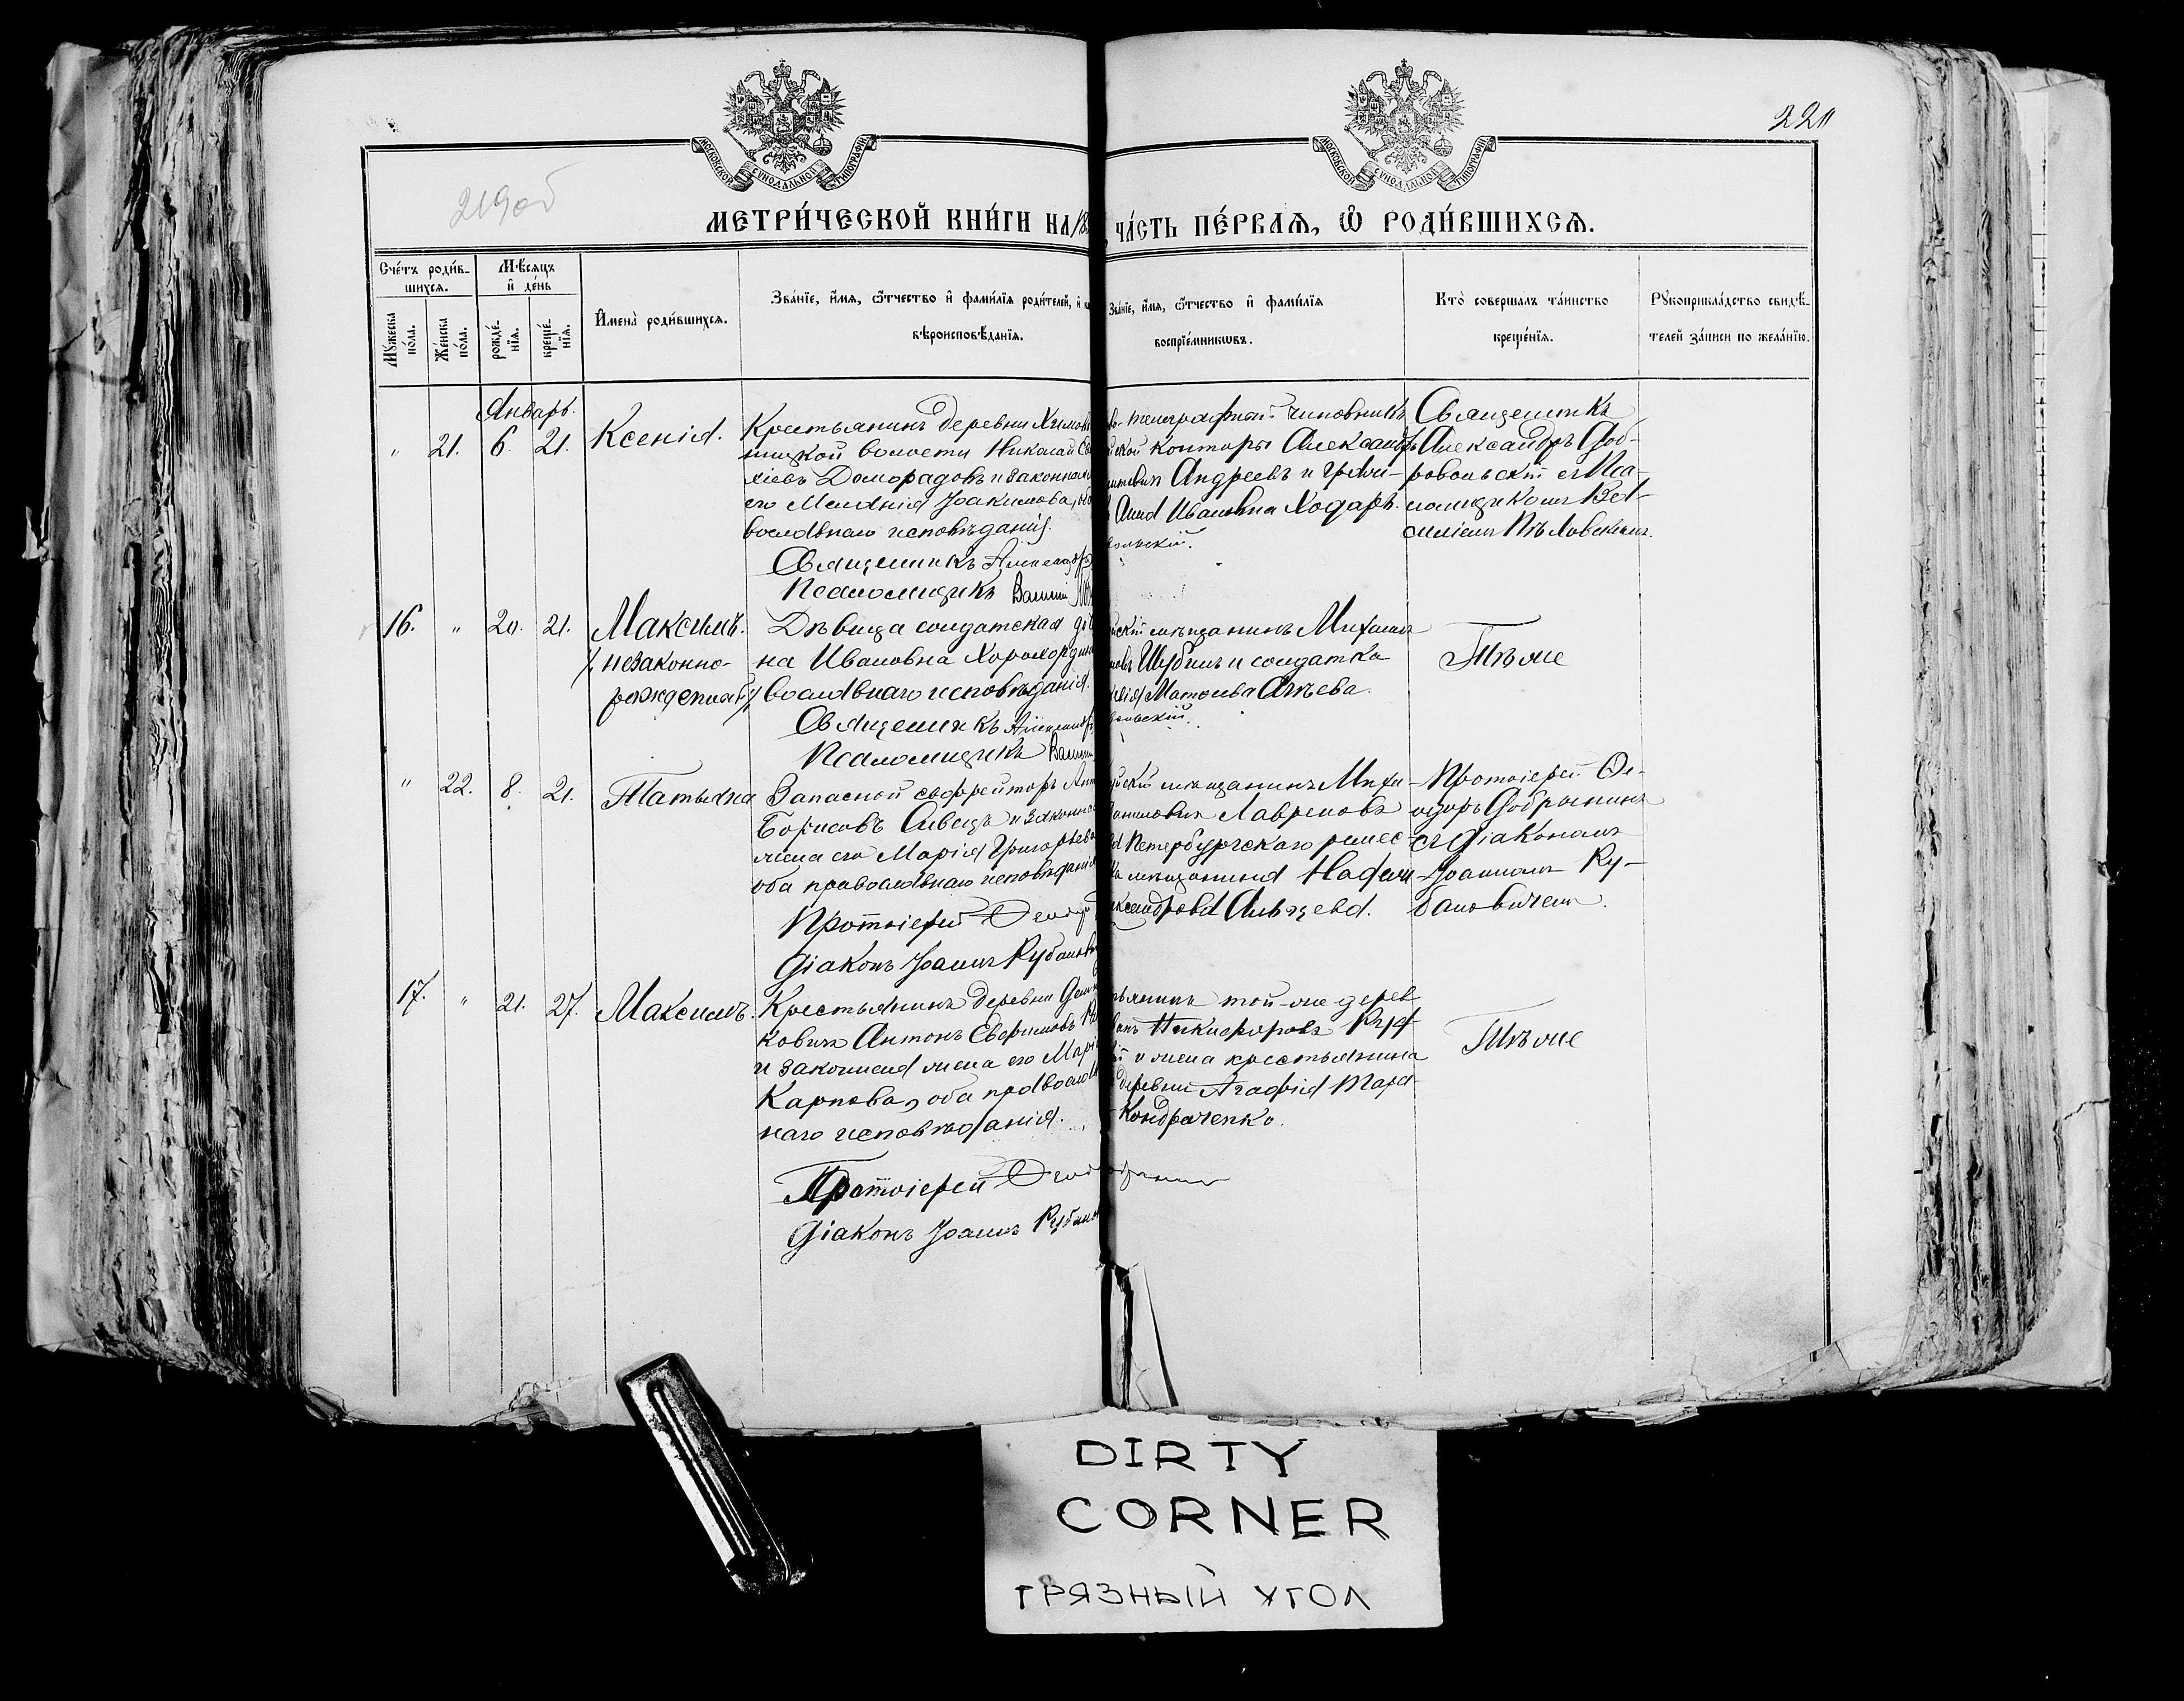 220
219об
МОСКОВСКОЙ СѴНОДАЛЬНОЙ ТИПОГРАФІИ
МОСКОВСКОЙ СѴНОДАЛЬНОЙ ТИПОГРАФІИ
МЕТРИ́ЧЕСКОЙ КНИ́ГИ НА 18
ЧА́СТЬ ПЕ́РВАѦ, Ѽ РОДИ́ВШИХСѦ.
Сче́тъ роди́в-
шихсѧ.
Мѹ́жеска по́ла.
Же́нска по́ла.
Мѣ́сѧцъ
и҆ де́нь
рожде́-нїѧ.
креще́-нїѧ.
И҆мена̀ роди́вшихсѧ.
Зва́нїе, и҆́мѧ, ѻ҆́тчество и҆ фами́лїѧ роди́телей, и҆
вѣроисповѣ́данїѧ.
Зва́нїе, и҆́мѧ, ѻ҆́тчество и҆ фами́лїѧ
воспрїе́мникѡвъ.
Кто̀ соверша́лъ та́инство
креще́нїѧ.
Рѹкоприкла́дство свидѣ́-
телей за́писи по жела́нїю.
Январь.
" 21. 6. 21. Ксенія.
Крестьянинъ деревни
волости Николай
Доморадовъ и законная
его Меланія Іоакимова,
вославнаго исповѣданія.
Священникъ Александръ
Псаломщикъ Василій
телеграфный чиновникъ
конторы Александръ
Андреевъ и
Анна Ивановна Ходаръ.
вольскій.
Священникъ
Александръ Доб-
ровольскій съ Пса-
ломщикомъ Ва-
силіемъ
16. " 20. 21. Максимъ.
незаконно-
рожденный
Дѣвица солдатская
на Ивановна
вославнаго исповѣданія.
Священникъ Александръ
Псаломщикъ Васил
мѣщанинъ Михаилъ
Шубинъ и солдатка
Матвеева Агѣева.
вольскій.
Тѣ же
" 22. 8. 21. Татьяна
Запасной ефрейторъ Ант
Борисовъ Сивецъ и законная
жена его Марія Григорьева
оба православнаго исповѣданія
Протоіерей Ѳеодоръ
Діаконъ Іоаннъ Рубанов
мѣщанинъ Миха-
Лавреновъ
Петербургскаго ремес-
мѣщанина
ксандрова
Протоіерей Ѳе-
одоръ Добрынинъ
съ діакономъ
Іоанномъ Ру-
бановичемъ.
17. " 21. 27. Максимъ.
Крестьянинъ деревни
ковичъ Антонъ Евфимовъ
и законная жена его Марія
Карпова, оба православ
наго исповѣданія.
Протоіерей Ѳеод
Діаконъ Іоаннъ Рубано
тьянинъ той-же дерев
Никифоровъ Руд
и жена крестьянина
деревни Агафія Мара
Кондраченко.
Тѣ же
DIRTY
CORNER
ГРЯЗНЫЙ УГОЛ